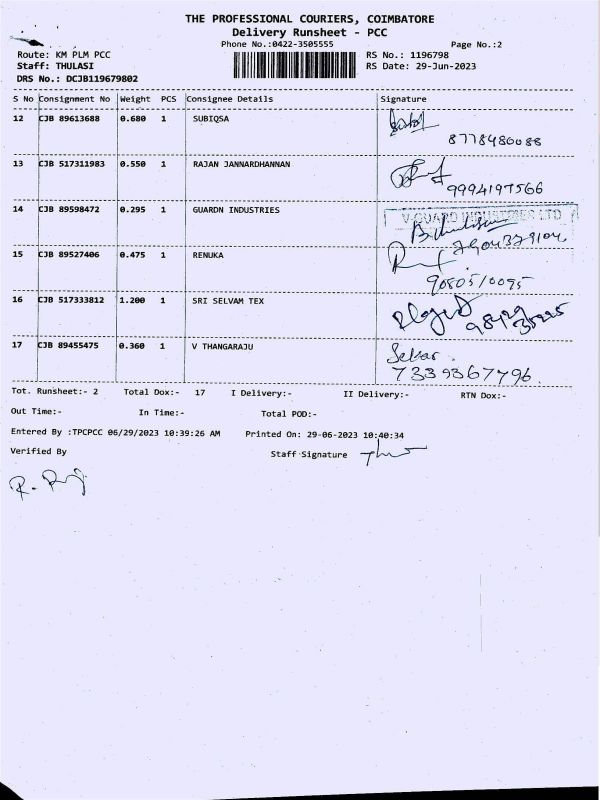 THE PROFESSIONAL COURIERS, COIMBATORE
Delivery Runsheet - PCC
Phone No.:0422-3505555 Page No.:2
Route: KM PLM PCC RS No.: 1196798
Staff: THULASI RS Date: 29-Jun-2023
DRS No.: DCJB119679802
S No Consignment No Weight PCS Consignee Details Signature
12 CJB 89613688 0.680 1 SUBIQSA
8778480088
13 CJB 517311983 0.550 1 RAJAN JANNARDHANNAN
9994197566
14 CJB 89598472 0.295 1 GUARDN INDUSTRIES V-GUARD INDUSTRIES LTD
7904379104
15 CJB 89527406 0.475 1 RENUKA
9080510095
16 CJB 517333812 1.200 1 SRI SELVAM TEX
17 CJB 89455475 0.360 1 V THANGARAJU
7339367796
Tot. Runsheet:- 2 Total Dox:- 17 I Delivery:- II Delivery:- RTN Dox:-
Out Time:- In Time:- Total POD:-
Entered By :TPCPCC 06/29/2023 10:39:26 AM Printed On: 29-06-2023 10:40:34
Verified By Staff Signature